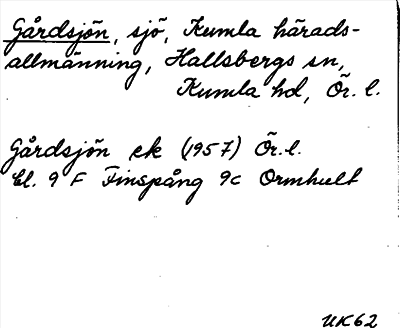 Gårdsjön, sjö, Kumla härads-
allmänning, Hallsbergs sn,
Kumla hd, Ör. l.
Gårdsjön ek (1957) Ör. l.
Bl. 9 F Finspång 9c Ormhult
UK62